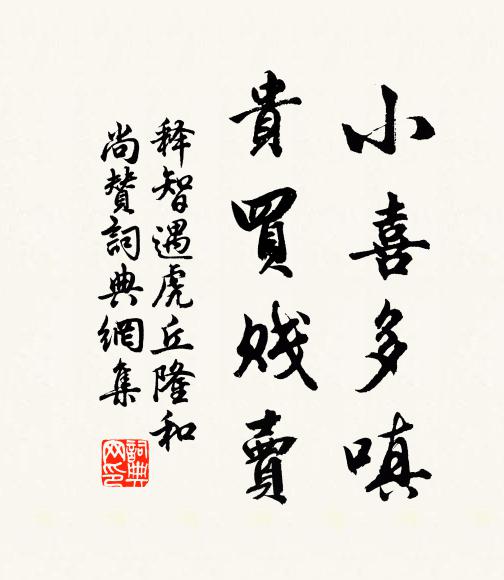 小喜多嗔
貴買賤賣
释智遇虎丘隆和
尚贊詞典網集
詞典
网印